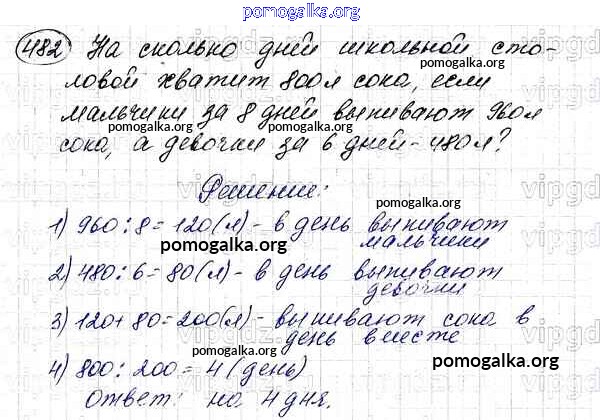 pomogalka.org
482 На сколько дней школьной сто-
ловой хватит 800л сока, если
мальчики за 8 дней выпивают 960л
pomogalka.org
pomogalka.org
сока, а девочки за 6 дней - 480л?
Решение:
pomogalka.org
1) 960:8=120(л)- в день выпивают
мальчики
pomogalka.org
2) 480:6=80(л)- в день выпивают
девочки
3) 120+80=200(л)- выпивают сока в
день вместе
pomogalka.org
pomogalka.org
4) 800:200=4(день)
Ответ: на 4 дня.
pomogalka.org